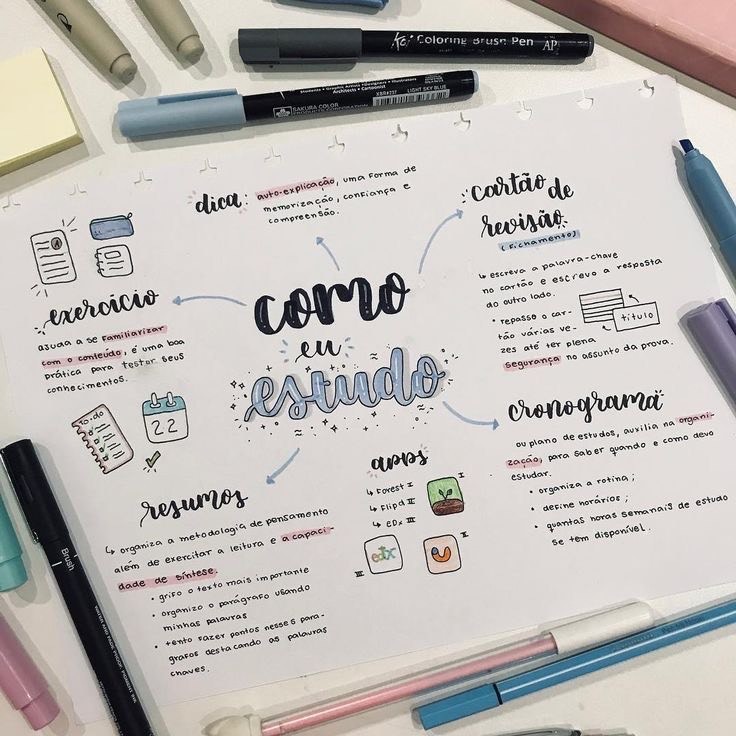 Koi Coloring Brush Pen AP
Students • Graphic Artists • Designers • Illustrators
Architects • Cartoonist
SAKURA COLOR
PRODUCTS CORPORATION
XBR#237 LIGHT SKY BLUE
dica: auto-explicação, uma forma de
memorização, confiança e
compreensão.
cartão de
revisão
(fichamento)
↳ escreva a palavra-chave
no cartão e escrevo a resposta
do outro lado.
• repasso o car-
tão várias ve-
zes até ter plena
segurança no assunto da prova.
título
exercício
ajuda a se familiarizar
com o conteúdo, é uma boa
prática para testar seus
conhecimentos.
A
como
eu
estudo
to-do
22
cronograma
ou plano de estudos, auxilia na organi-
zação, para saber quando e como devo
estudar.
• organiza a rotina;
• define horários;
• quantas horas semanais de estudo
se tem disponível.
apps
↳ Forest I
↳ Flipd II
↳ eDx III
I
edx
III
II
resumos
↳ organiza a metodologia de pensamento
além de exercitar a leitura e a capaci-
dade de síntese.
• grifo o texto mais importante
• organizo o parágrafo usando
minhas palavras
• tento fazer pontos nesses pará-
grafos destacando as palavras
chaves.
Brush